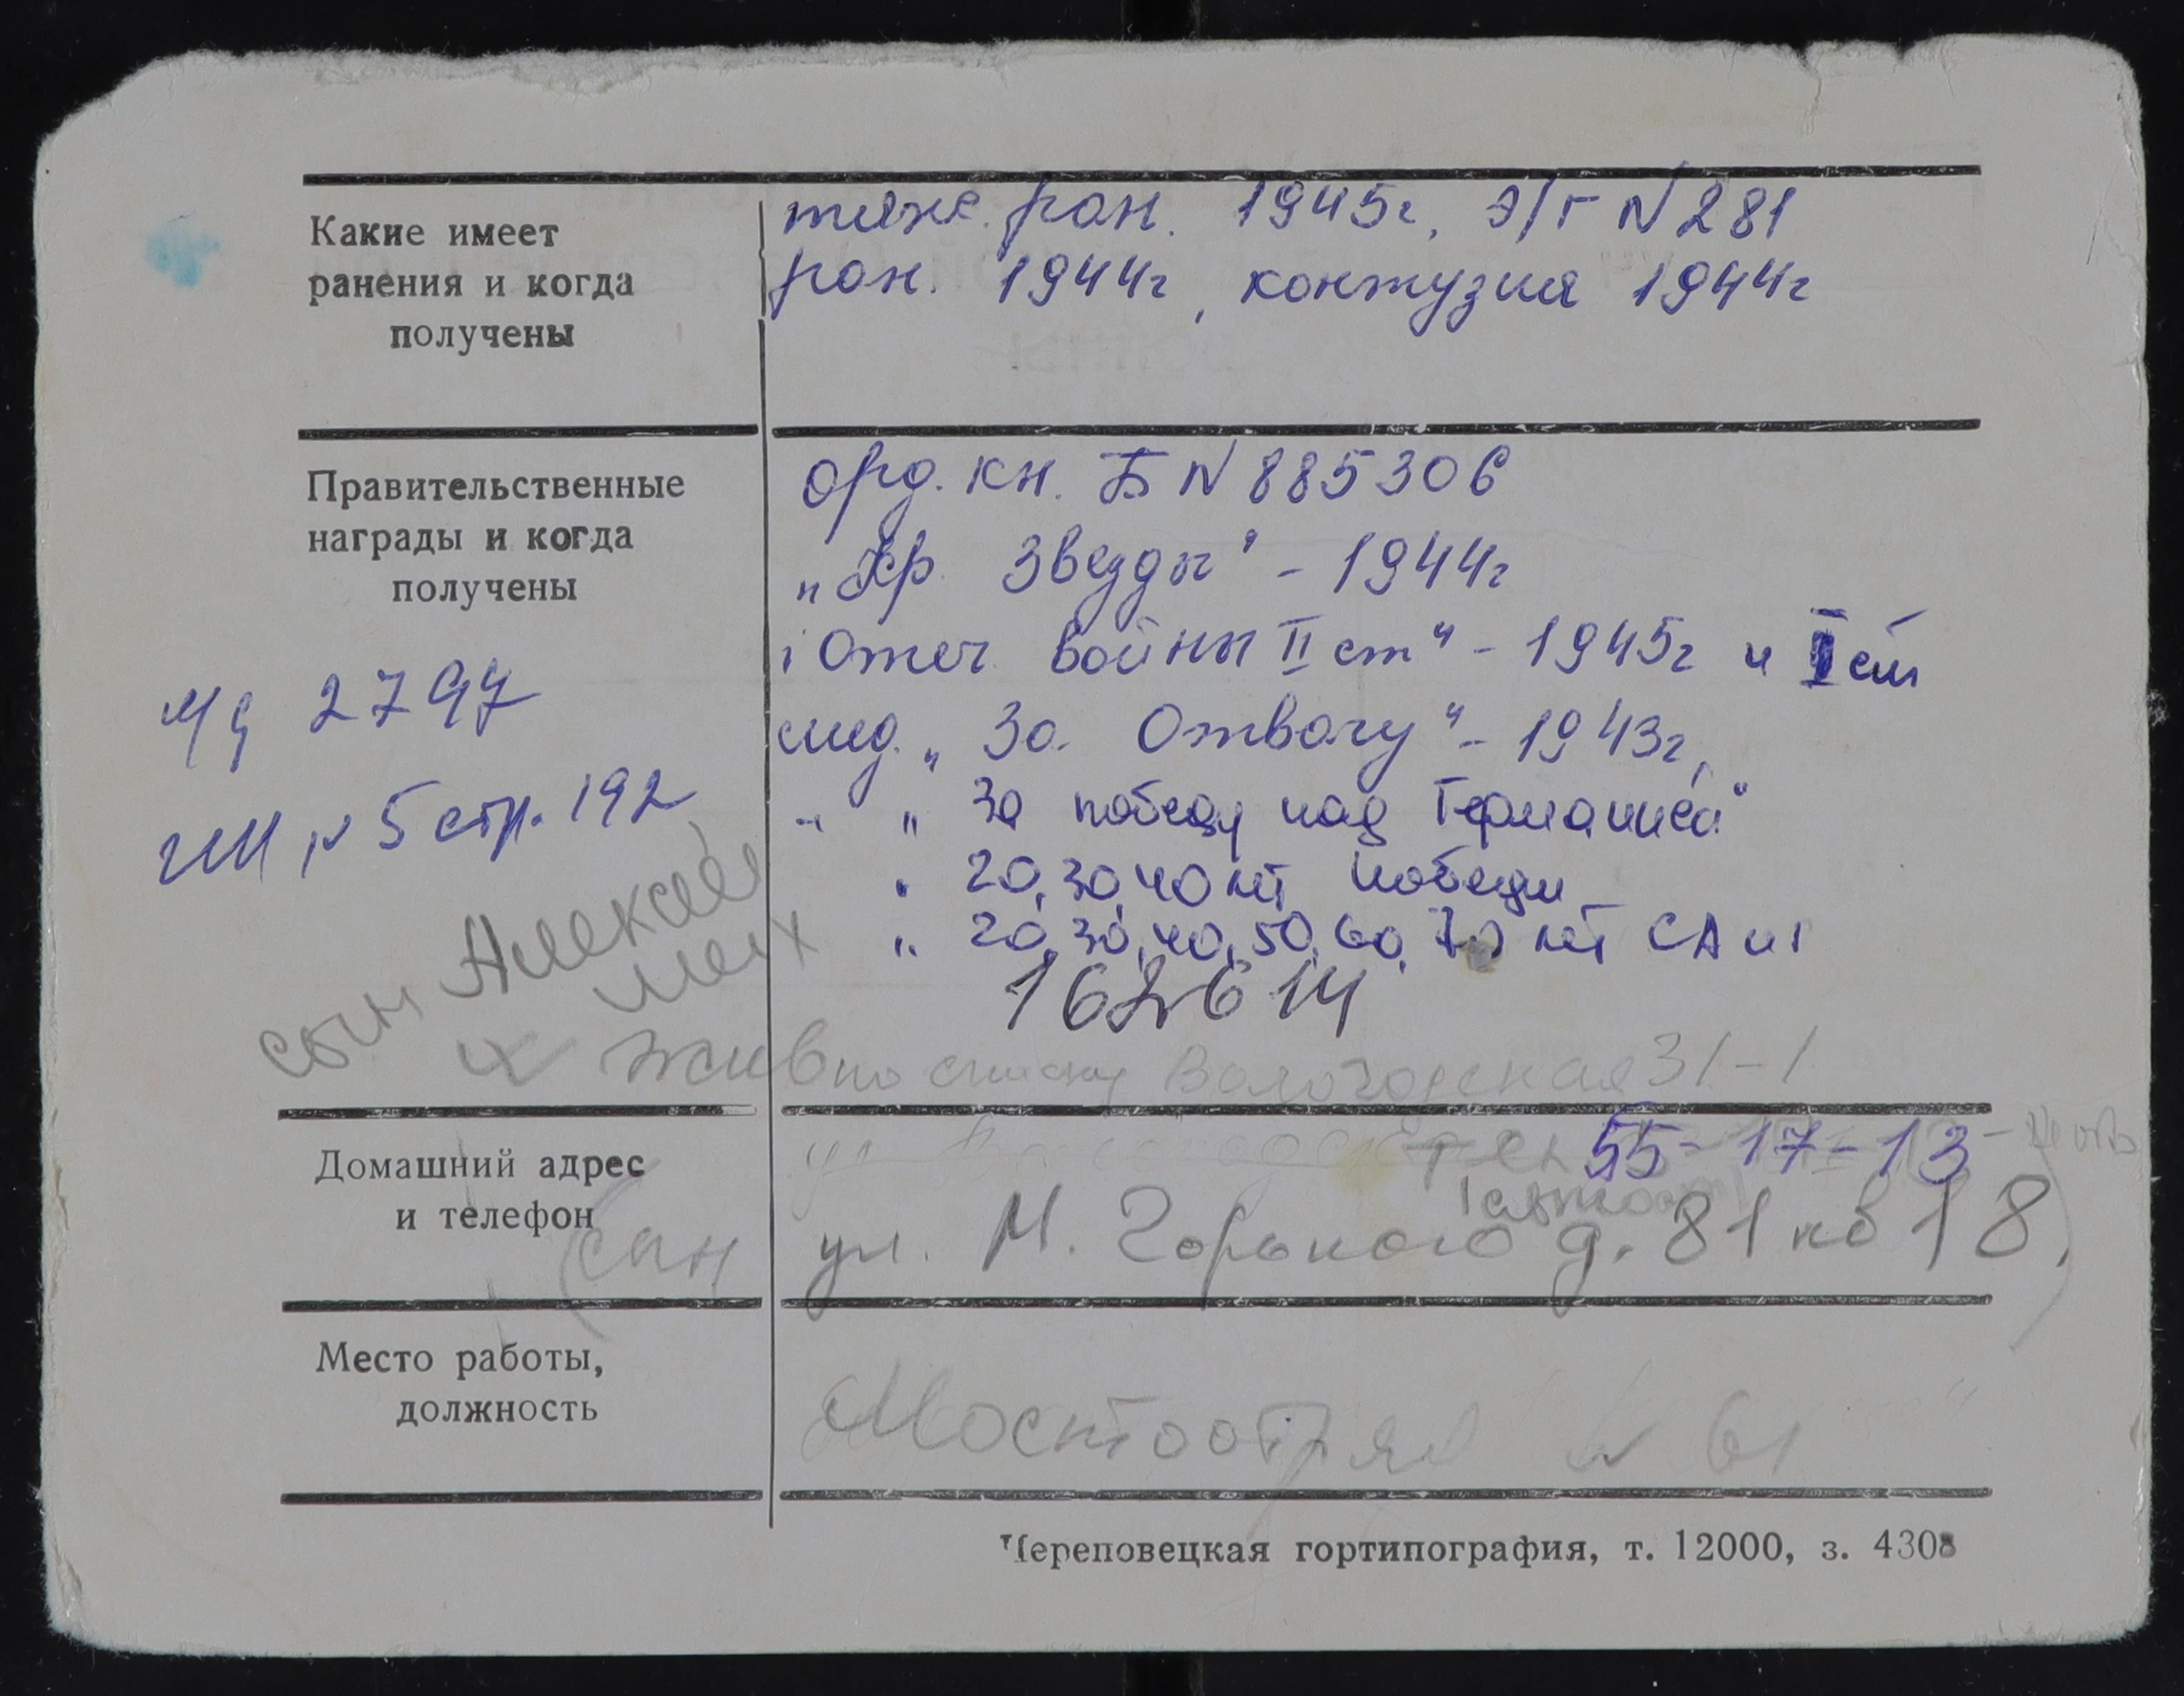 Какие имеет
ранения и когда
получены
тяж. ран. 1945г, Э/Г N 281
ран. 1944г, контузия 1944г
Правительственные
награды и когда
получены
Орд. кн. Б N 885306
„Кр. Звезды" - 1944г
Отеч. войны II ст" - 1945г и I ст
мед. „За Отвагу" - 1943г,
" " За победу над Германией"
" 20, 30, 40 лет победы
" 20, 30, 40, 50, 60, 70 лет СА и
2797
N 5 стр. 192
сын Алексей
жив по списку Вологодская 31-1
Домашний адрес
и телефон
тел 55-17-13
(сын ул. М. Горького д. 81 кв 18)
Место работы,
должность
Мостоотряд N 61
Череповецкая гортипография, т. 12000, з. 4308